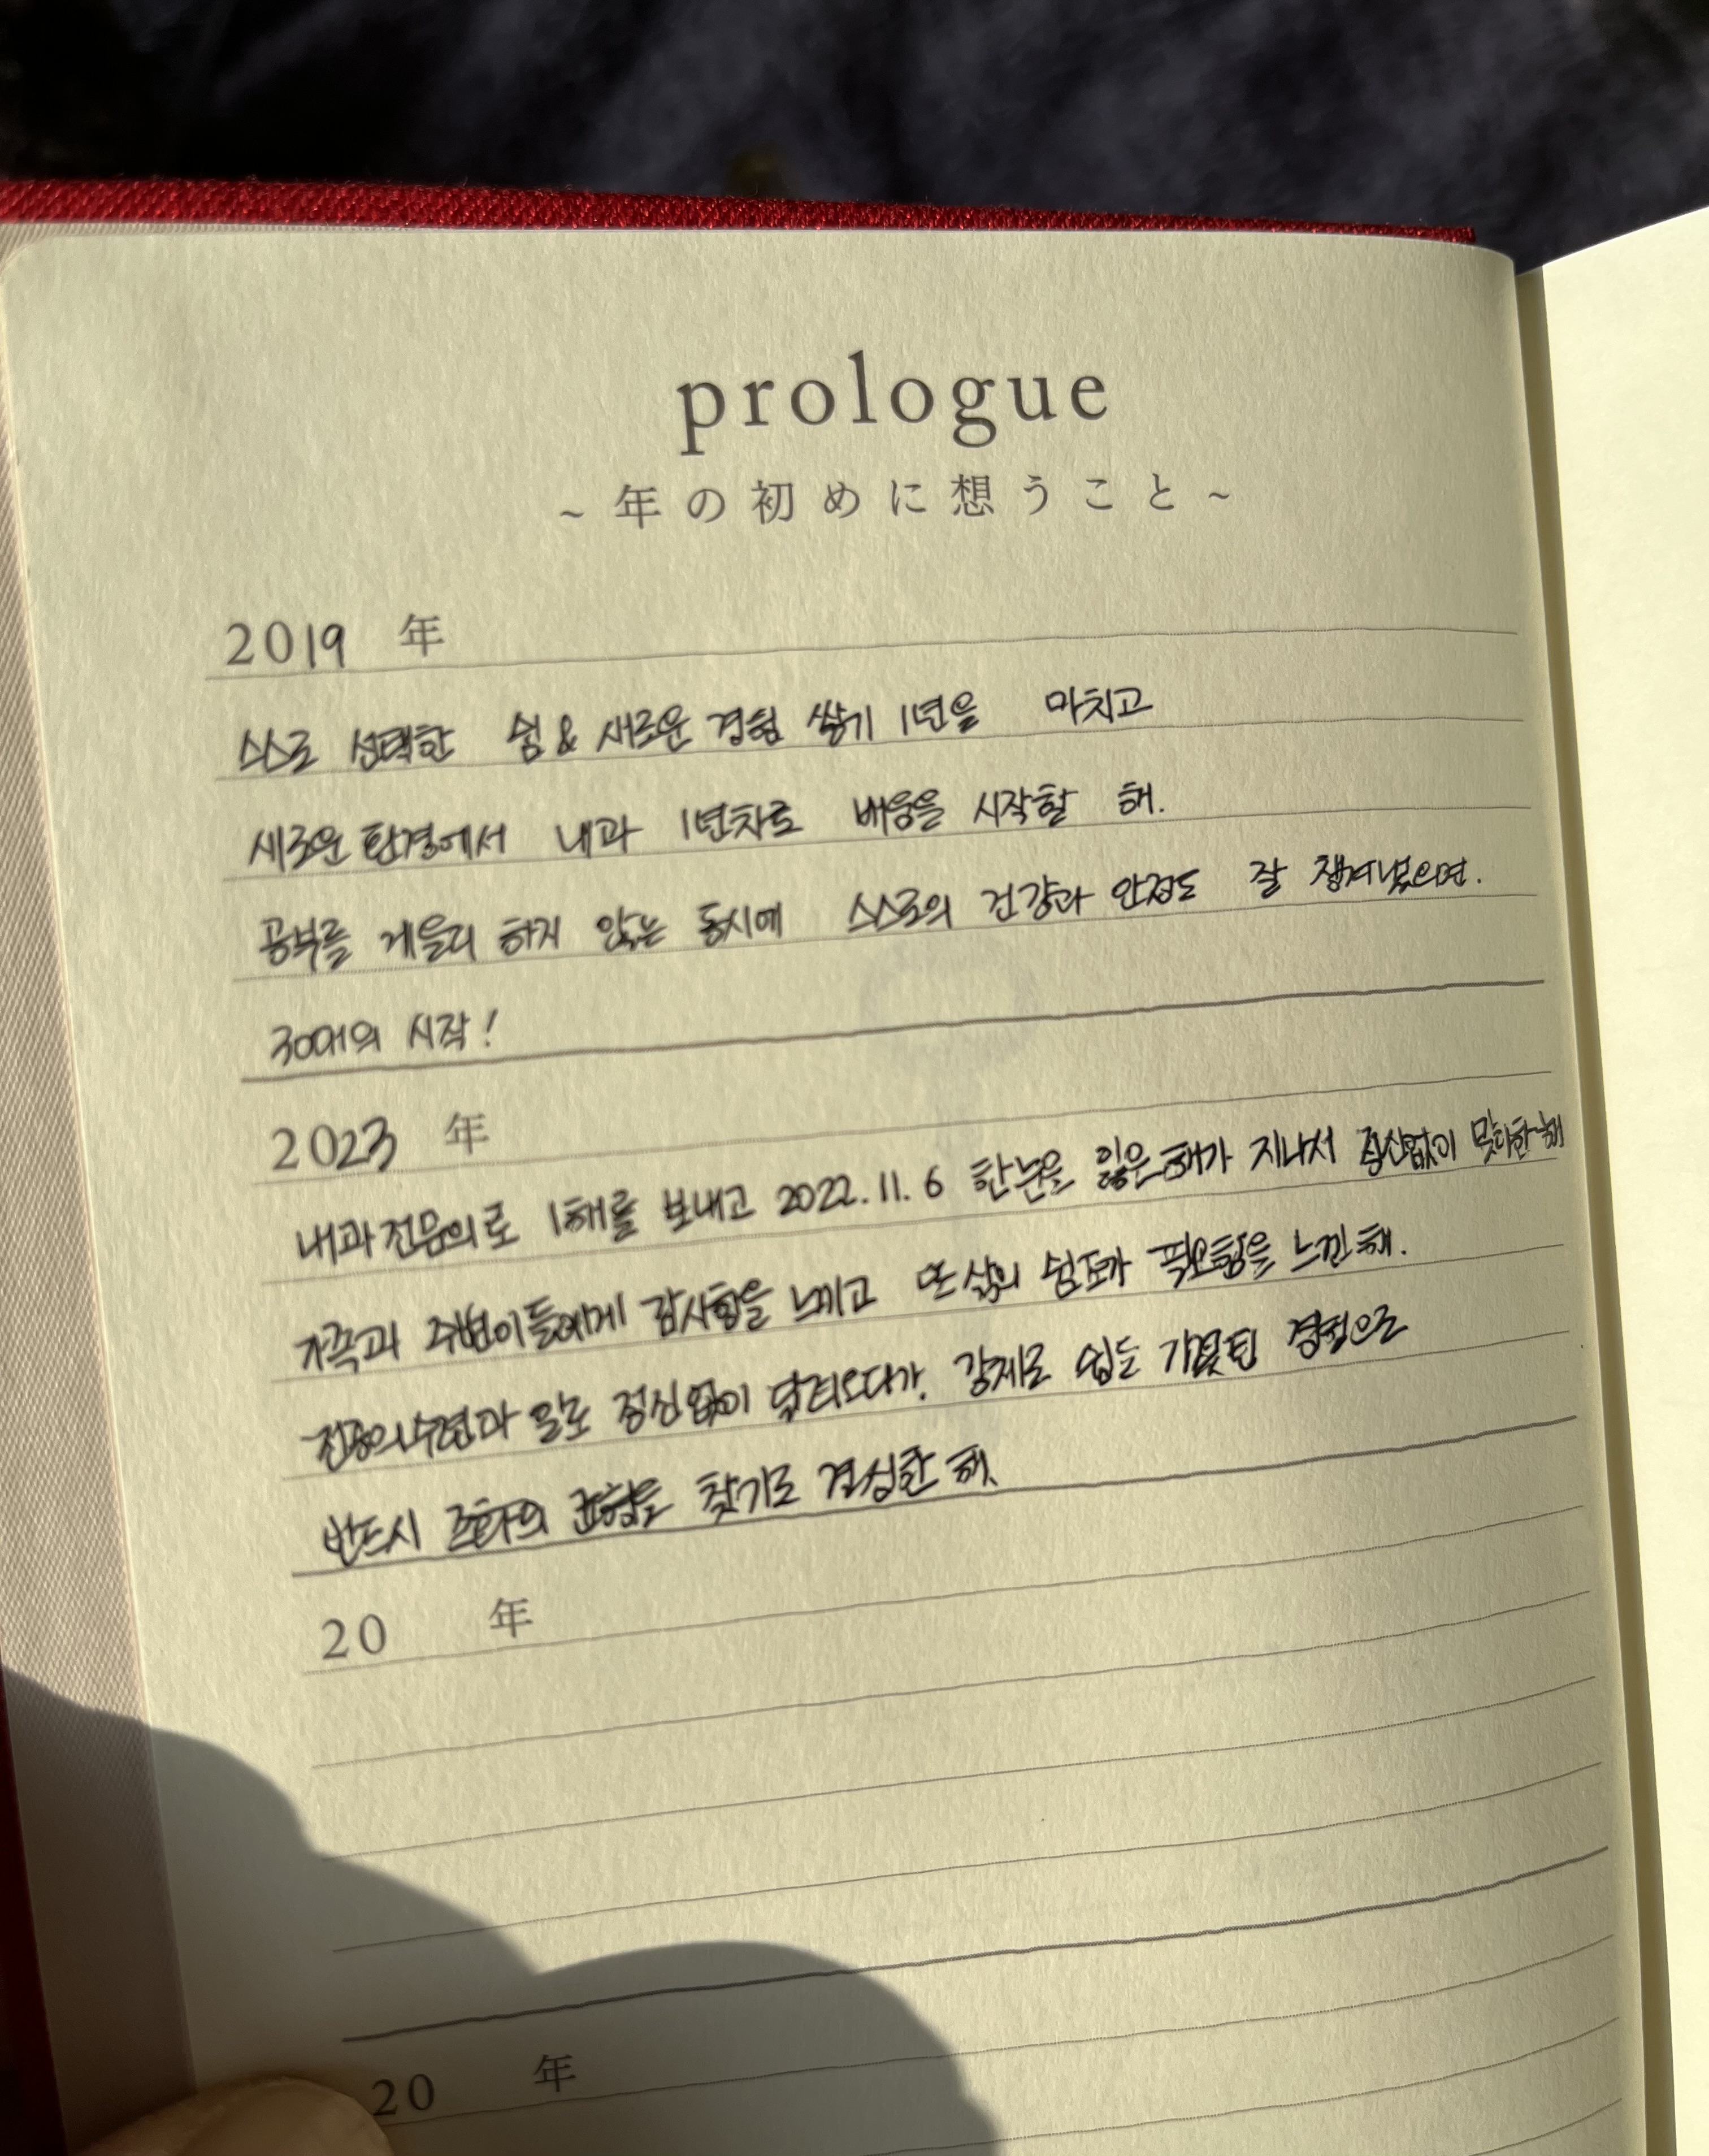 prologue
~年の初めに想うこと~
2019 年
스스로 선택한 쉼 & 새로운 경험 쌓기 1년을 마치고
새로운 환경에서 내과 1년차로 배움을 시작할 해.
공부를 게을리 하지 않는 동시에 스스로의 건강과 안정도 잘 챙겨냈으면.
30대의 시작!
2023 年
내과전문의로 1해를 보내고 2022.11.6 한눈을 잃은해가 지나서 정신없이 맞이한해
가족과 주변이들에게 감사함을 느끼고 또 삶의 쉼표가 필요함을 느낀해.
전공의수련과 일로 정신없이 달려오다가. 강제로 쉽는 경험으로
반드시 조화의 균형을 찾기로 결심한 해.
20 年
20 年